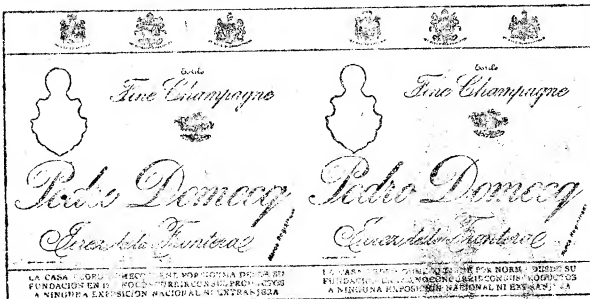 Estilo
Fine Champagne
Pedro Domecq
Jerez de la Frontera
LA CASA PEDRO DOMECQ TIENE POR NORMA DESDE SU
FUNDACION EN NO CONCURRIR CON SUS PRODUCTOS
A NINGUNA EXPOSICION NACIONAL NI EXTRANJERA
Estilo
Fine Champagne
Pedro Domecq
Jerez de la Frontera
LA CASA PEDRO DOMECQ TIENE POR NORMA DESDE SU
FUNDACION NO CONCURRIR CON SUS PRODUCTOS
A NINGUNA EXPOSICION NACIONAL NI EXTRANJERA